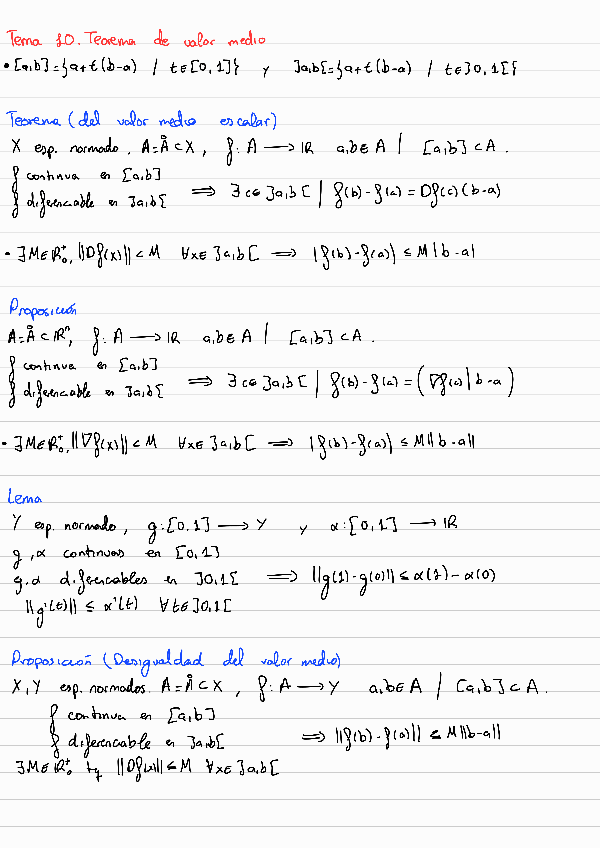 Tema 10. Teorema de valor medio
• [a,b]={a+t(b-a) / t∈[0,1]} y ]a,b[={a+t(b-a) / t∈]0,1[}
Teorema (del valor medio escalar)
X esp. normado, A=Å⊂X, f: A → IR a,b∈A / [a,b]⊂A.
f continua en [a,b]
f diferenciable en ]a,b[ ⟹ ∃c∈]a,b[ | f(b)-f(a)=Df(c)(b-a)
• ∃M∈ℝ₀⁺, ||Df(x)||≤M ∀x∈]a,b[ ⟹ |f(b)-f(a)|≤M|b-a|
Proposición
A=Å⊂ℝⁿ, f: A → IR a,b∈A / [a,b]⊂A.
f continua en [a,b]
f diferenciable en ]a,b[ ⟹ ∃c∈]a,b[ | f(b)-f(a)=(∇f(c)|b-a)
• ∃M∈ℝ₀⁺, ||∇f(x)||≤M ∀x∈]a,b[ ⟹ |f(b)-f(a)|≤M||b-a||
Lema
Y esp. normado, g:[0,1] → Y y α:[0,1] → IR
g,α continuas en [0,1]
g,α diferenciables en ]0,1[ ⟹ ||g(1)-g(0)||≤α(1)-α(0)
||g'(t)||≤α'(t) ∀t∈]0,1[
Proposición (Desigualdad del valor medio)
X,Y esp. normados. A=Å⊂X, f: A → Y a,b∈A / [a,b]⊂A.
f continua en [a,b]
f diferenciable en ]a,b[ ⟹ ||f(b)-f(a)||≤M||b-a||
∃M∈ℝ₀⁺ tq ||Df(x)||≤M ∀x∈]a,b[